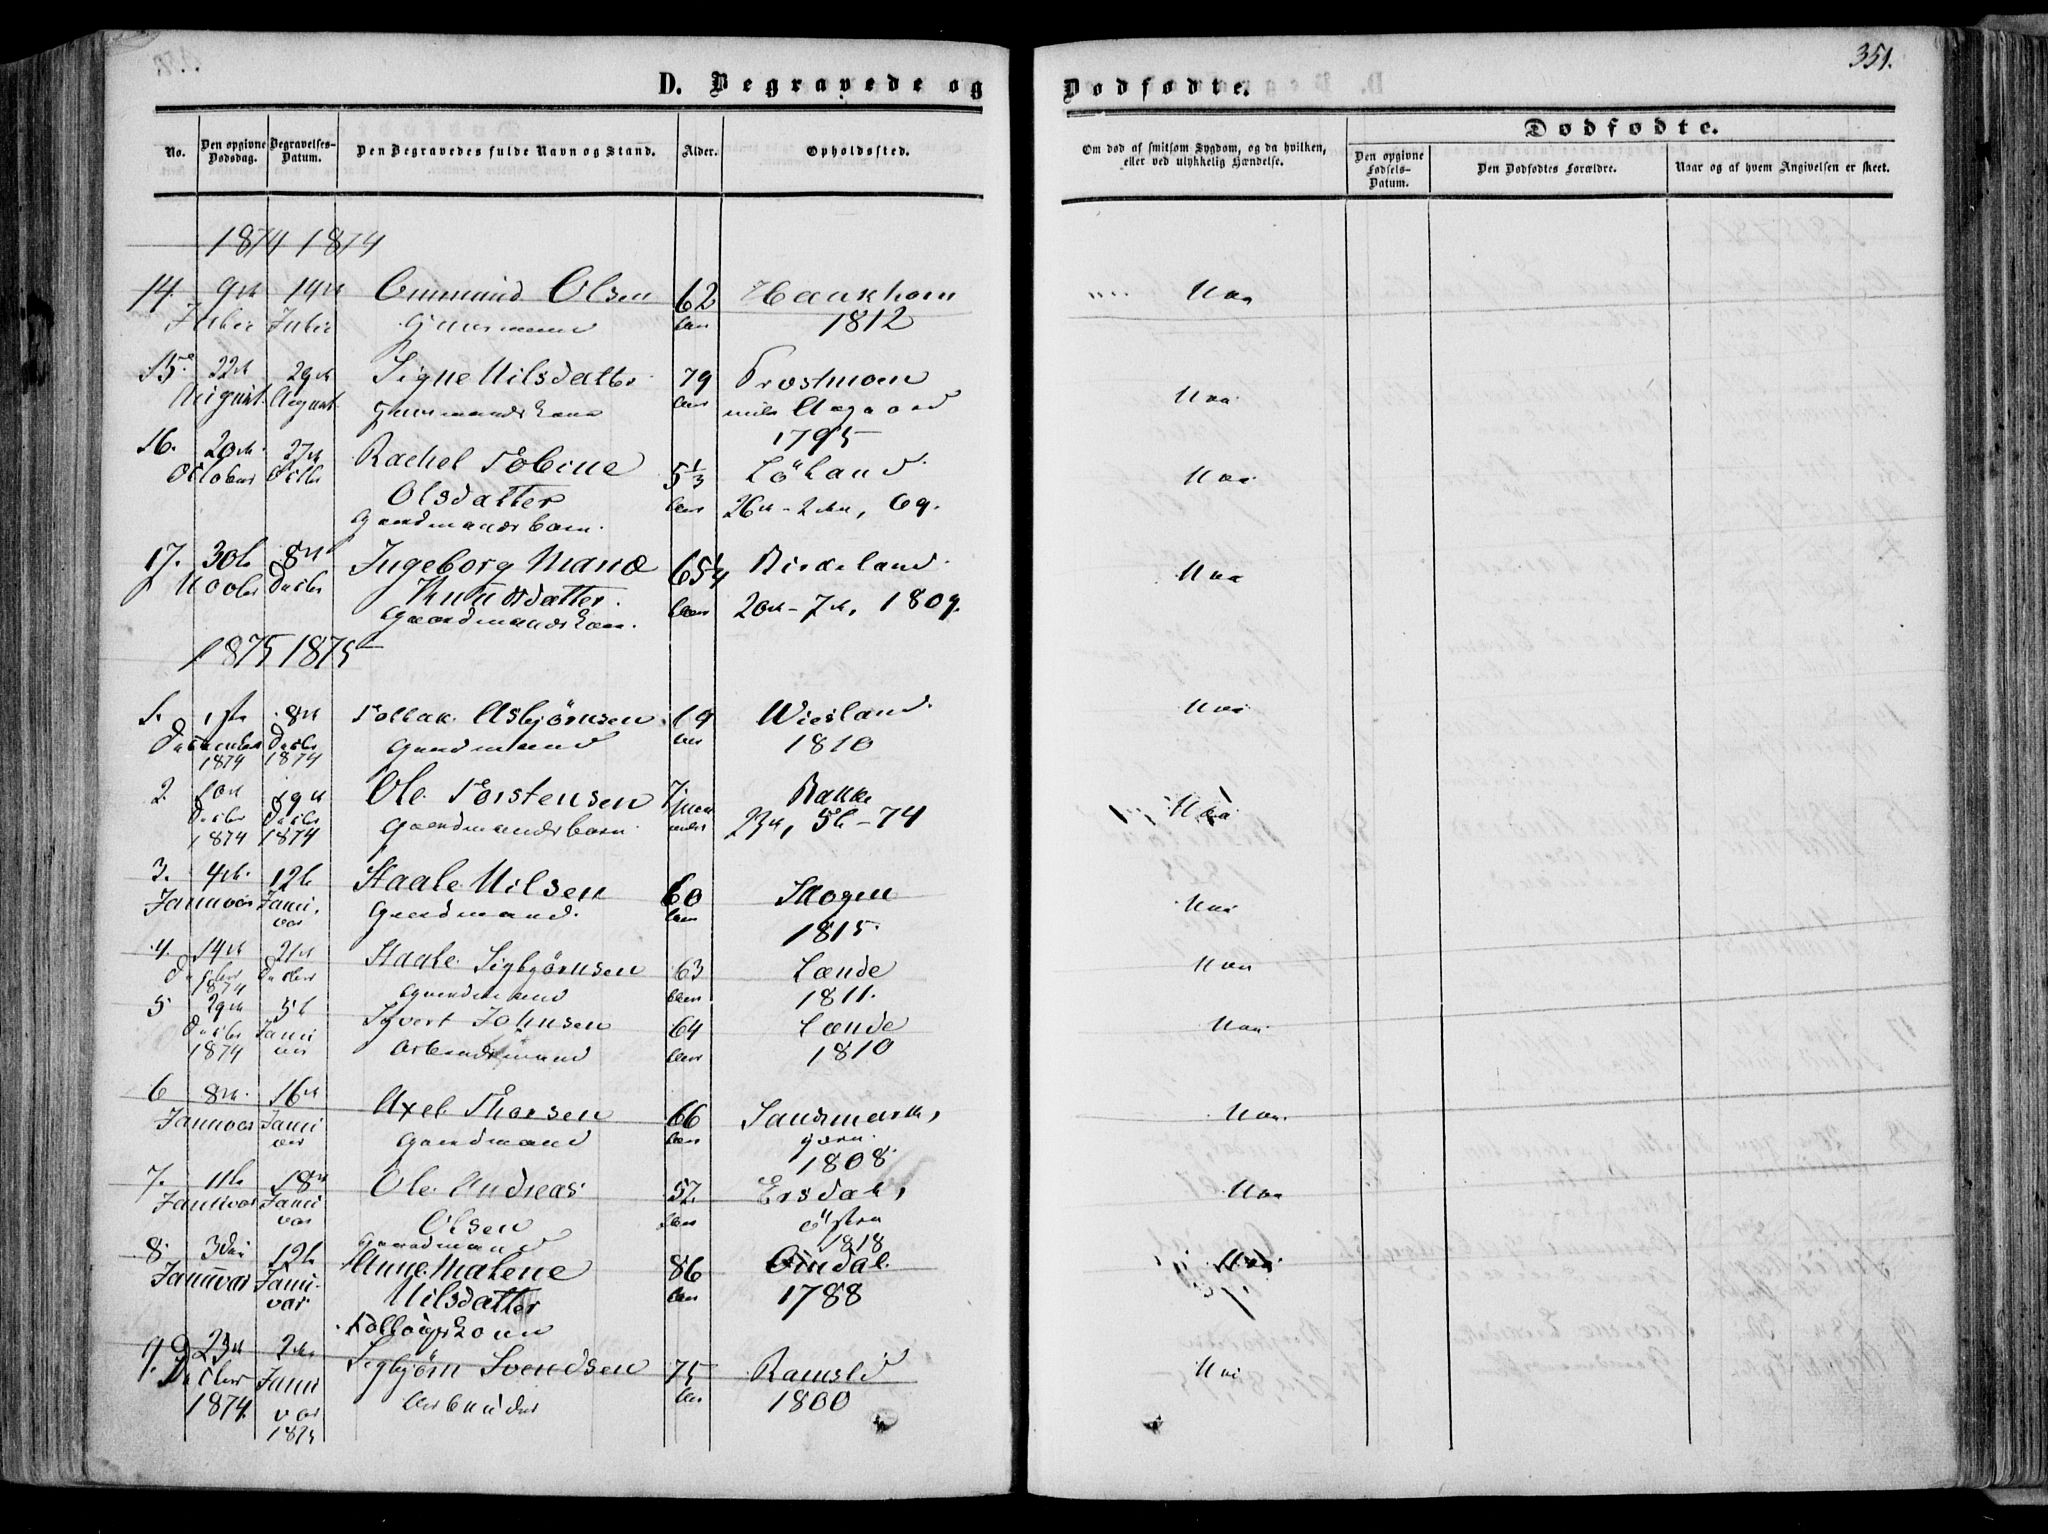 351.
D. Begravede og Dødfødte.
No. Den opgivne Dødsdag. Begravelses-Datum. Den Begravedes fulde Navn og Stand. Alder. Opholdssted.
Om død af smitsom Sygdom, og da hvilken, eller ved ulykkelig Hændelse.
Dødfødte.
Den opgivne Fødsels-Datum. Den Dødfødtes Forældre. Naar og af hvem Angivelsen er skeet.
1874 1874
14. 9de 14de Ommund Olsen 62 Haukhom Nei
1812
15. 22de 29de Signe Nilsdatter 79 Prostmoen Nei
August August
1795
16. 20de 27de Rachel Tobine 5 1/3 Løland Nei
October Octbr Olsdatter Aar 26de 2den, 69.
Gaardmandsbarn.
17. 30te 8de Ingeborg Marie 65 1/4 Birkeland Nei
Novbr Decbr Knudsdatter Aar 20de 7de, 1809.
Gaardmandskone.
1875 1875
1. 1ste 8de Tollak Asbjørnsen 64 Virland Nei
December Decbr Gaardmand Aar 1810
1874 1874
2. 10de 19de Ole Torstensen 7 Rakke Nei
Decbr Decbr Gaardmandsbarn maaneder 23de, 5te - 74
1874 1874
3. 4de 12te Staale Nilsen 60 Skogen Nei
Januar Janu- Gaardmand. Aar
ar 1815.
4. 14de 21de Staale Sigbjørnsen 63 Lande Nei
Decbr Decbr Gaardmand Aar 1811.
1874
5 29de 5te Syvert Johnsen 64 Lande Nei
Decbr Janu Arbeidsmand Aar 1810
1874 ar
6 8de 16de Axel Thorsen 66 Sandsmark, Nei
Januar Janu Gaardmand Aar
ar 1808.
7. 11te 18de Ole Andreas 57 Ersdal, Nei
Januar Janu Olsen Aar østre
ar Gaardmand 1818
8. 3die 12te Anne Malene 86 Omdal Nei
Januar Janu- Nilsdatter Aar 1788
ar
9. 23de 2den Sigbjørn Svendsen 75 Ramsli Nei
Decbr Janu Arbeider Aar 1800
1874. ar
1875